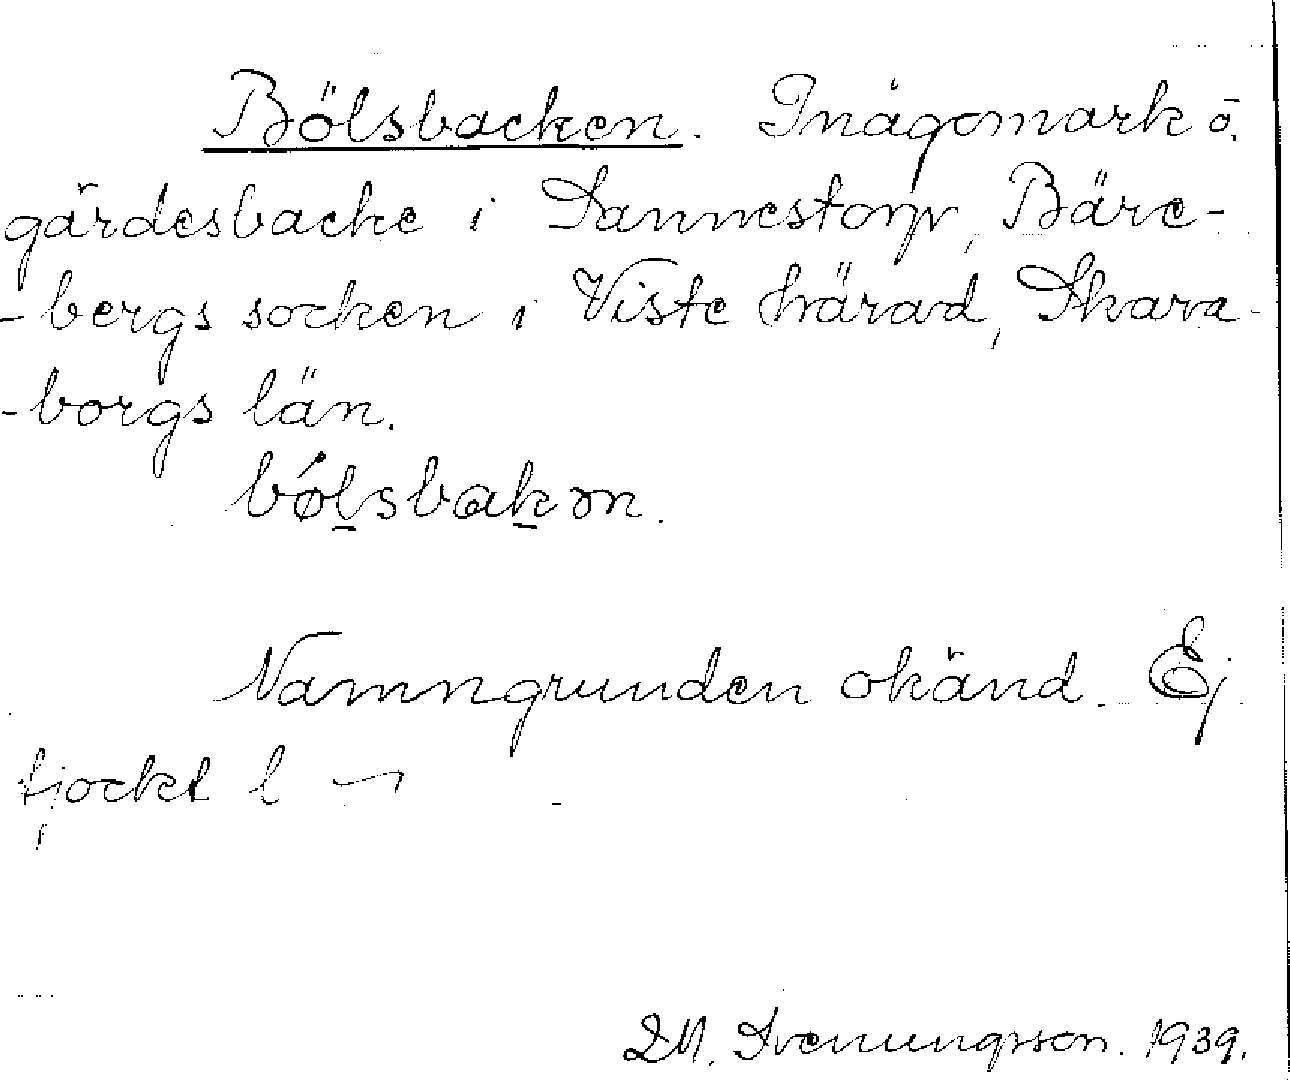 Bölsbacken. Inägomark o.
gärdesbacke i Dannestorp, Bäre-
-bergs socken i Viste härad, Skara-
-borgs län.
bø̀lsbakən.
Namngrunden okänd. Ej
tjockt l
Svenungsson. 1939.